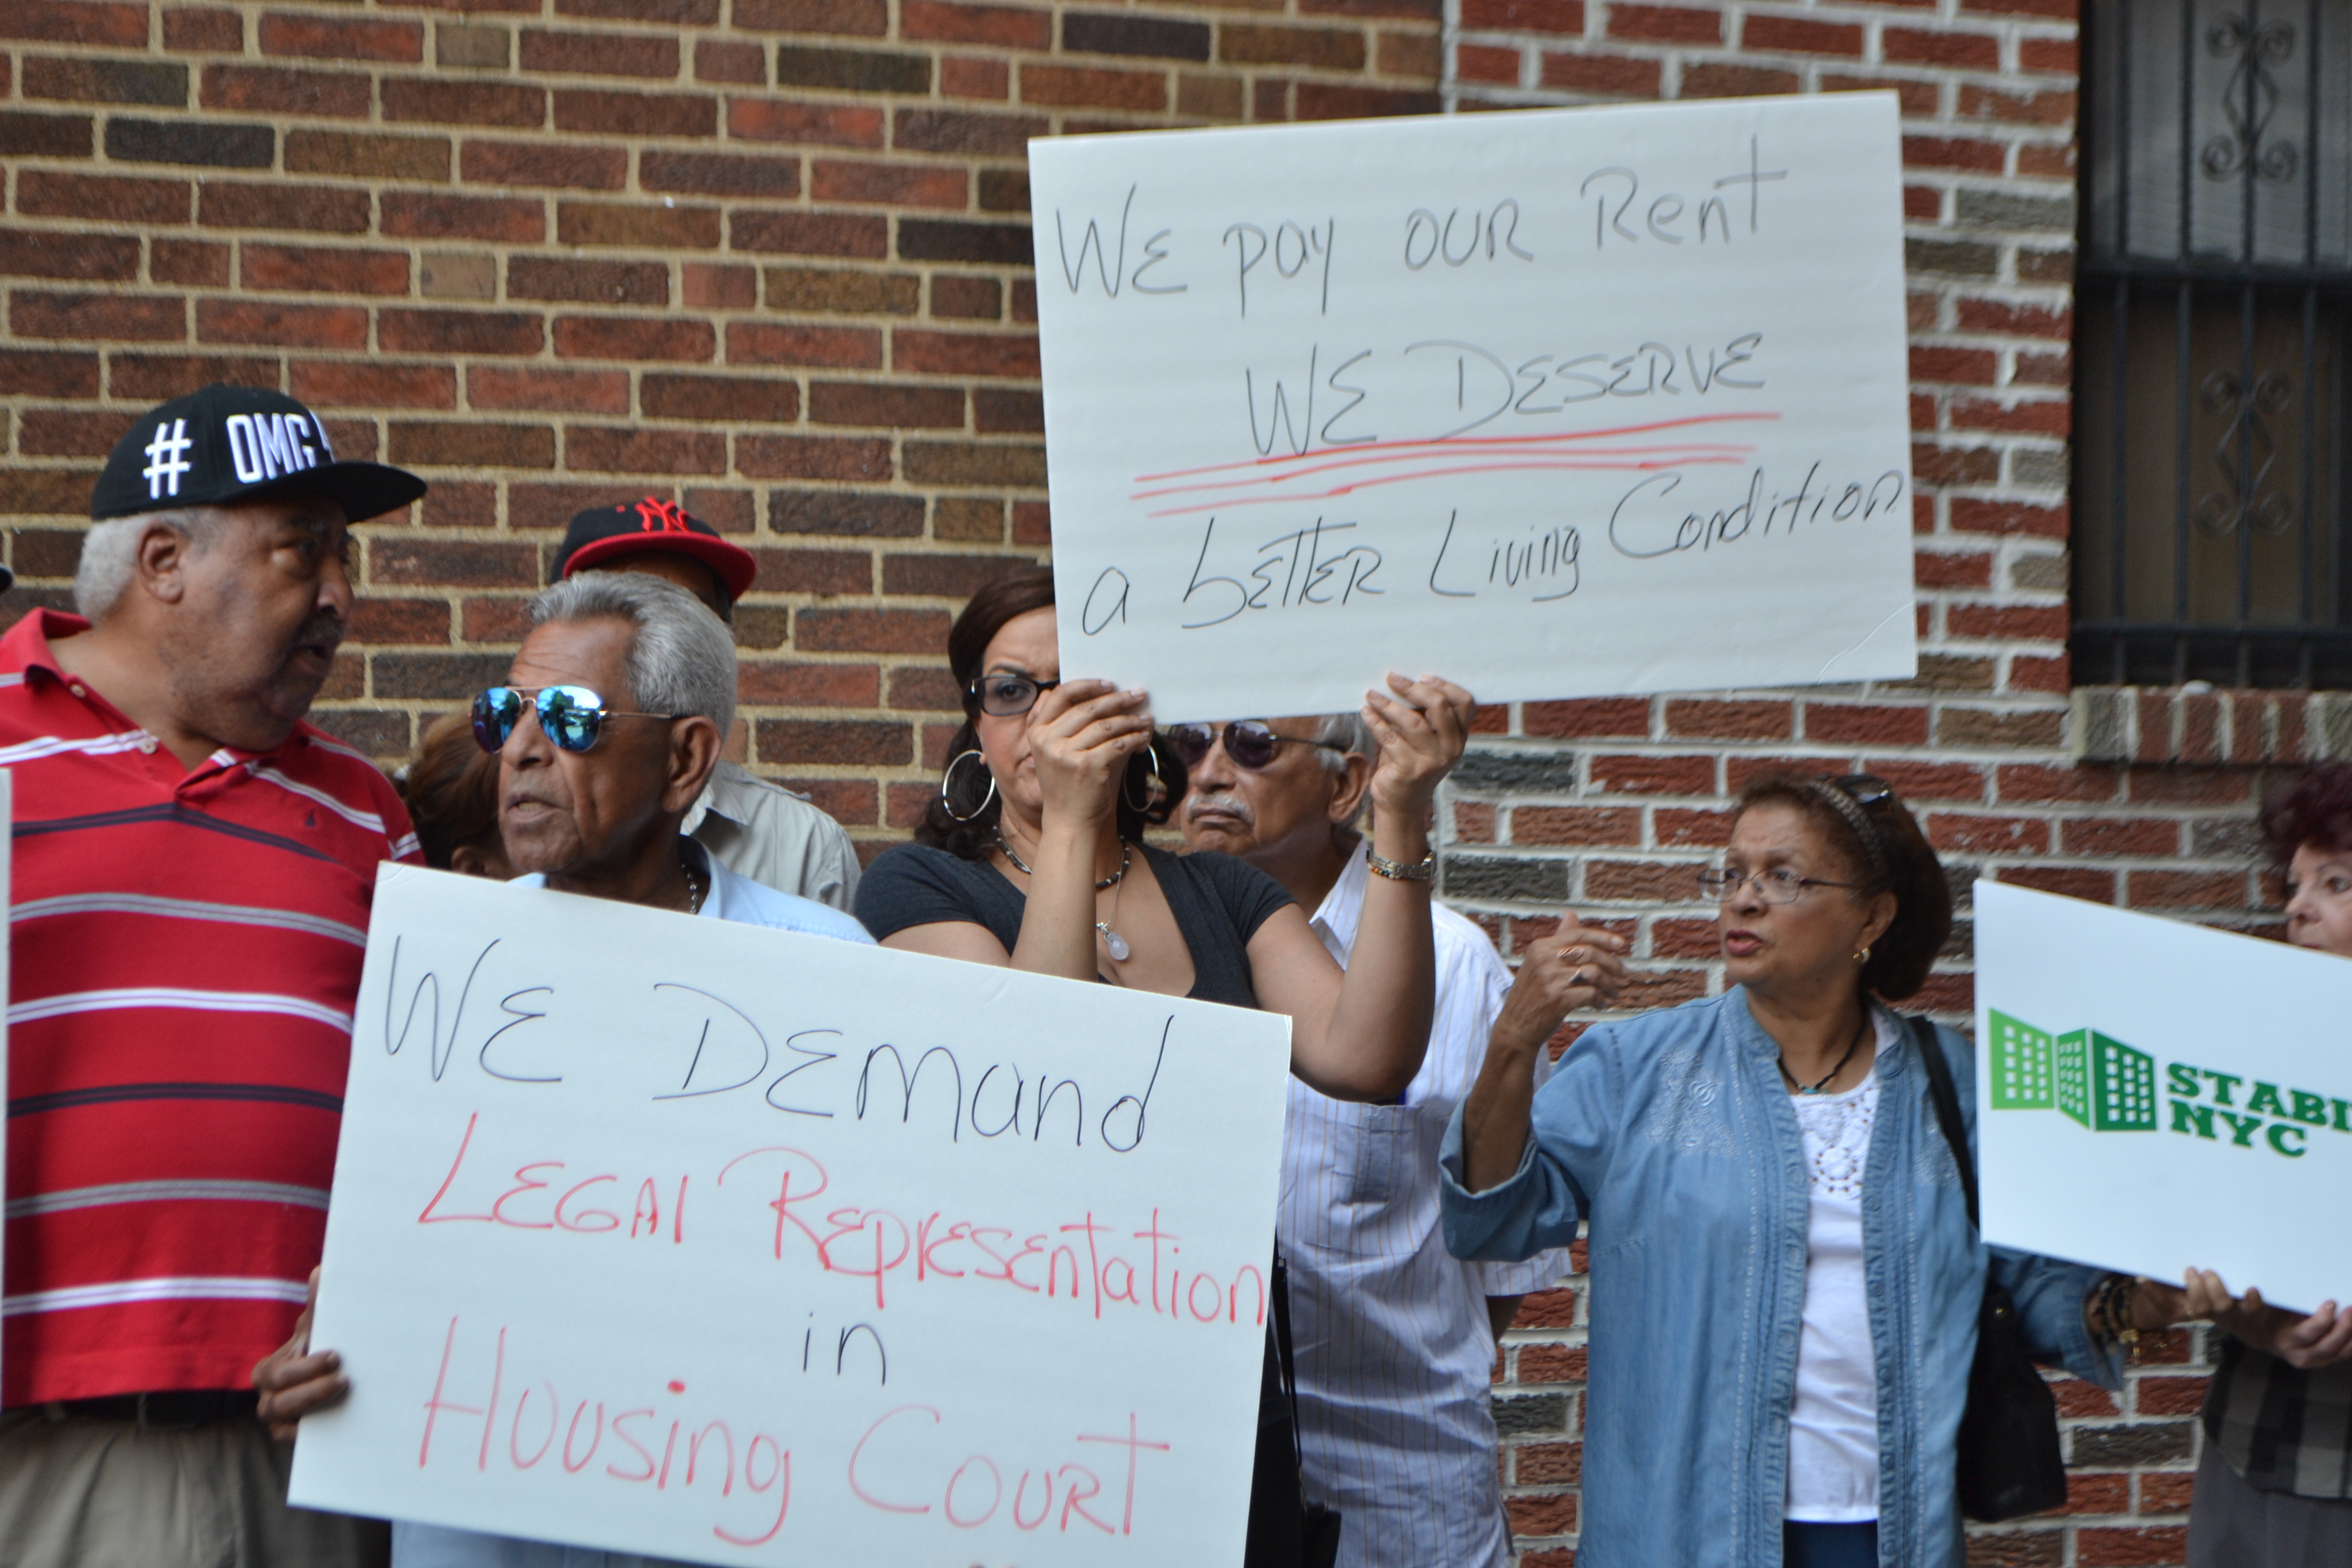 # OMG
NY
WE pay OUR Rent
WE DESERVE
a bETTER Living Condition
WE DEmand
LEGAl REpresEntation
in
Housing COURT
NYC